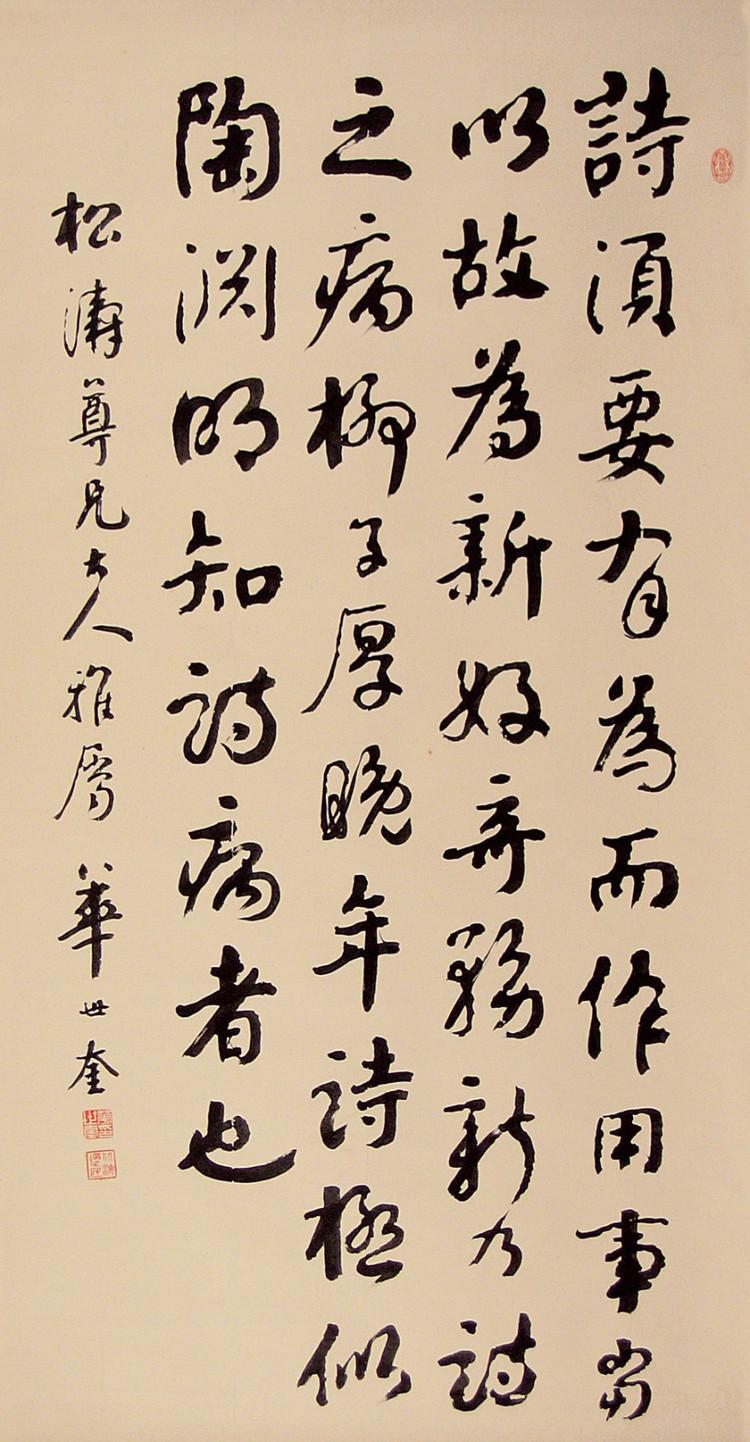 詩須要有為而作用事當
以故為新好奇務新乃詩
之病柳子厚晚年詩極似
陶淵明知詩病者也
松濤尊兄大人雅屬 華世奎